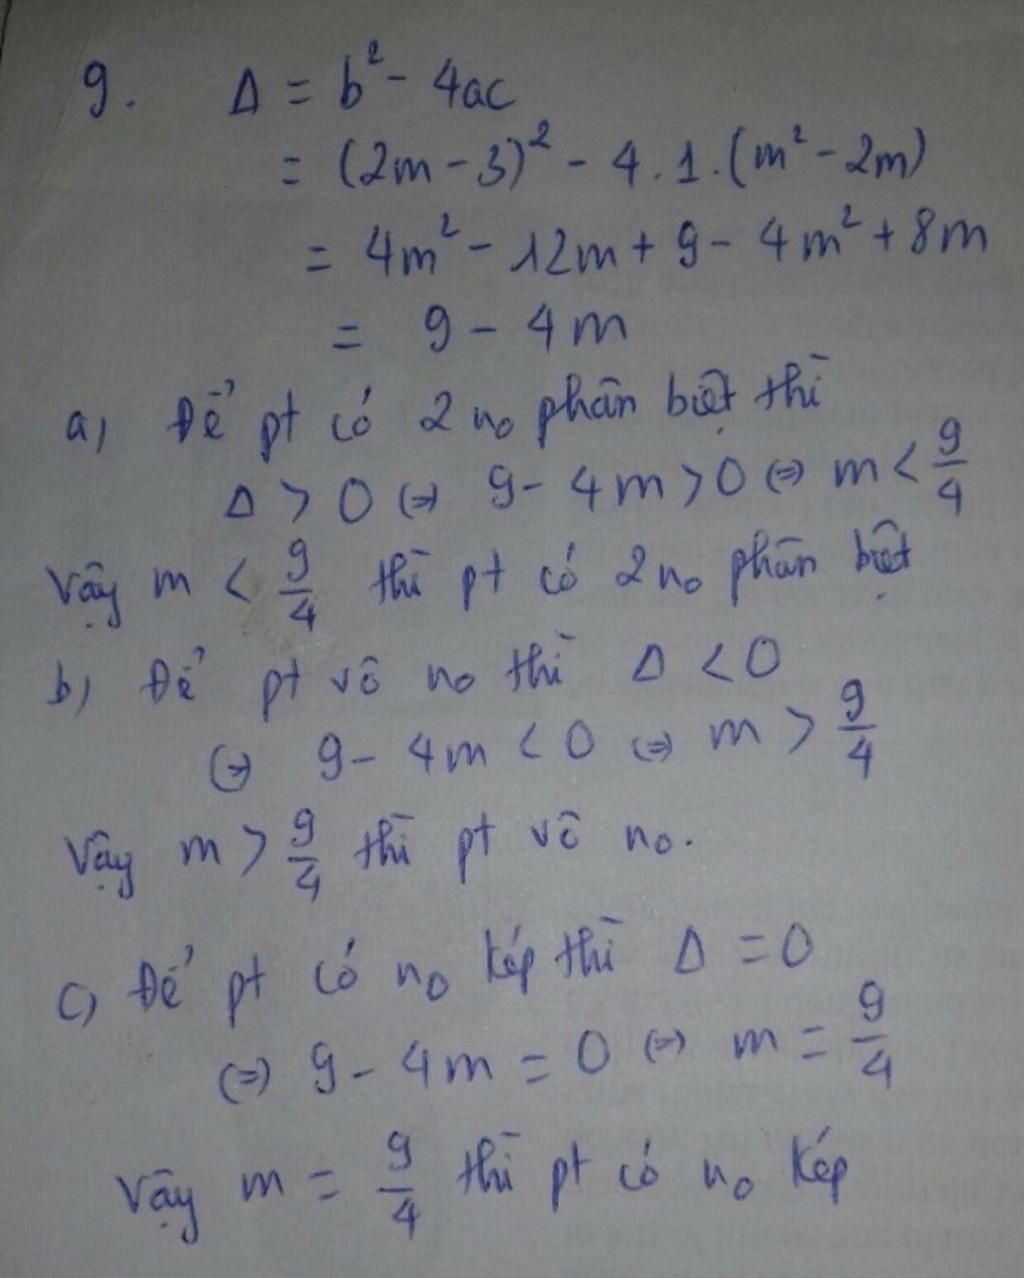 9. Δ = b² - 4ac
= (2m - 3)² - 4 . 1 . (m² - 2m)
= 4m² - 12m + 9 - 4m² + 8m
= 9 - 4m
a, Để pt có 2 no phân biệt thì
Δ > 0 (=) 9 - 4m > 0 (=) m < 9/4
Vậy m < 9/4 thì pt có 2 no phân biệt
b, Để pt vô no thì Δ < 0
(=) 9 - 4m < 0 (=) m > 9/4
Vậy m > 9/4 thì pt vô no.
c, Để pt có no kép thì Δ = 0
(=) 9 - 4m = 0 (=) m = 9/4
Vậy m = 9/4 thì pt có no kép